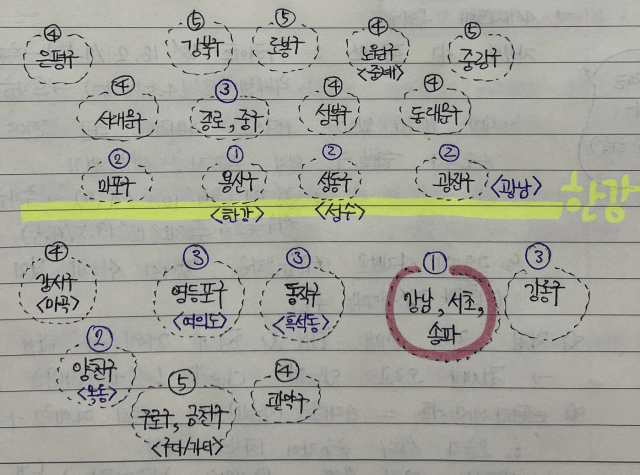 ④ ⑤ ⑤ ④ ⑤
은평구 강북구 도봉구 노원구 중랑구
<중계>
④ ③ ④ ④
서대문구 종로, 중구 성북구 동대문구
② ① ② ②
마포구 용산구 성동구 광진구 <광남>
<한강> <성수>
한강
④ ③ ③ ① ③
강서구 영등포구 동작구 강남, 서초, 강동구
<마곡> <여의도> <흑석동> 송파
② ⑤ ④
양천구
<목동>
구로구, 금천구 관악구
<구디/가디>